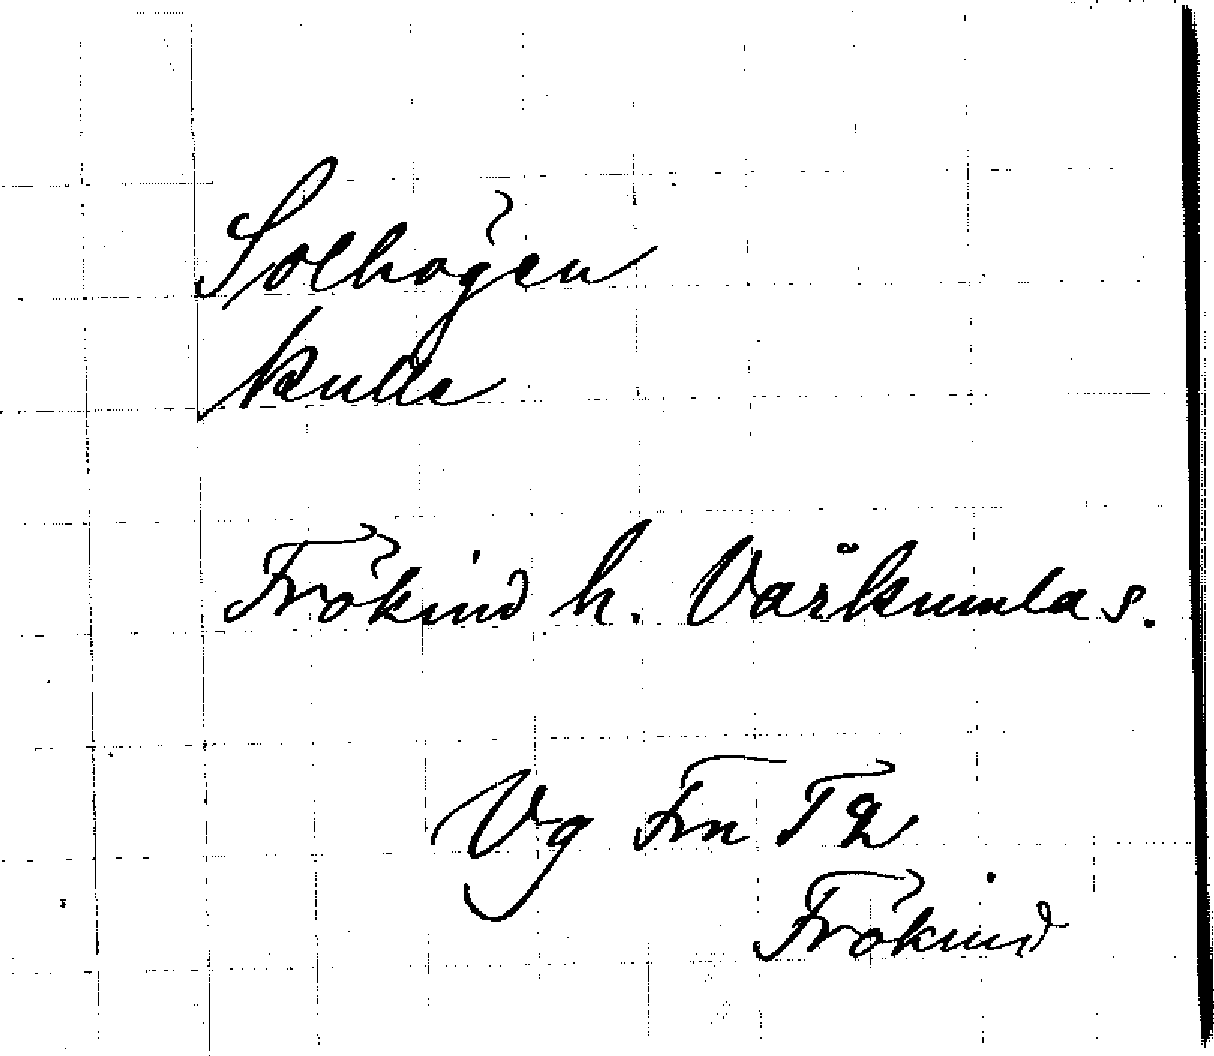 Solhögen
kulle
Frökind h. Vårkumla s.
Vg Frn T 2
Frökind